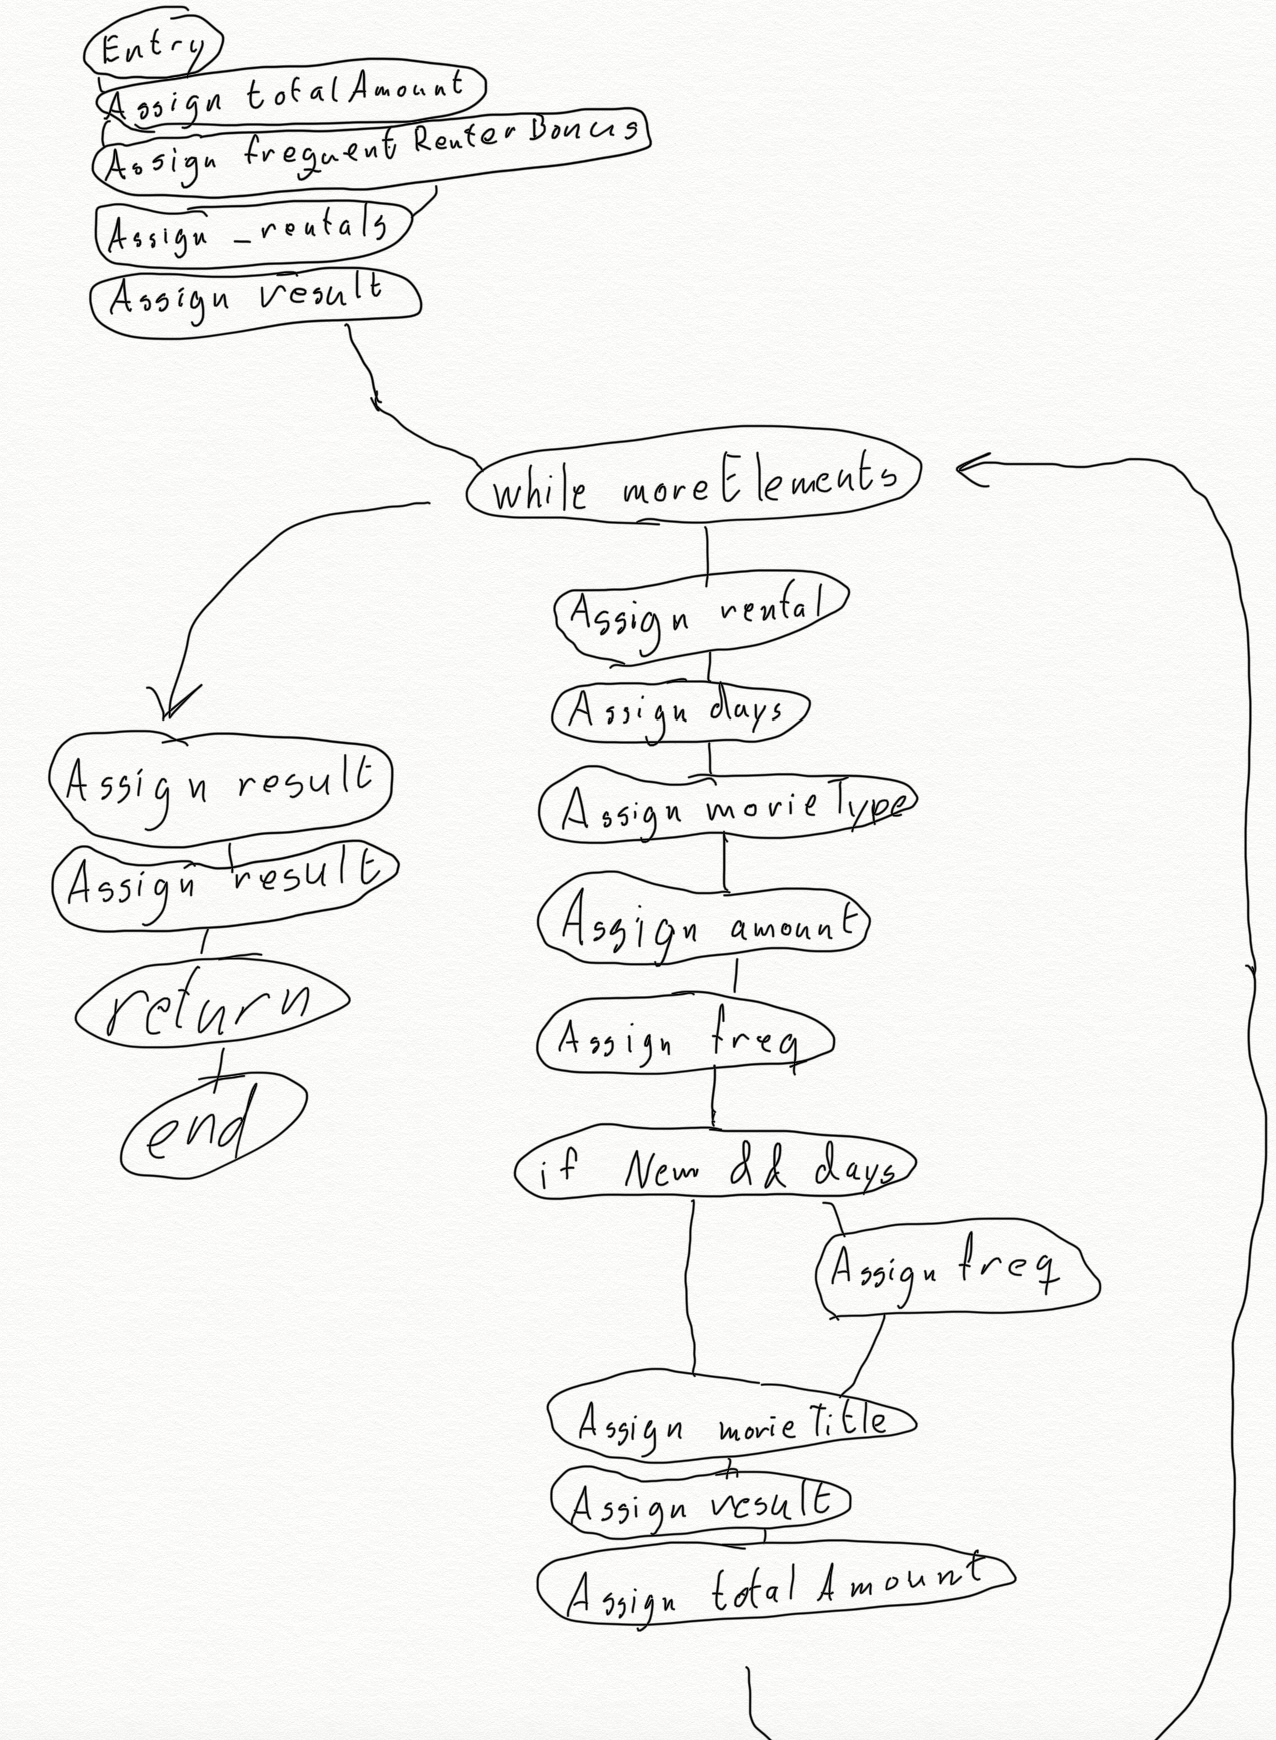 Entry
Assign totalAmount
Assign frequentRenterBonus
Assign _rentals
Assign result
while moreElements
Assign rental
Assign days
Assign movieType
Assign amount
Assign freq
if New && days
Assign freq
Assign movieTitle
Assign result
Assign totalAmount
Assign result
Assign result
return
end